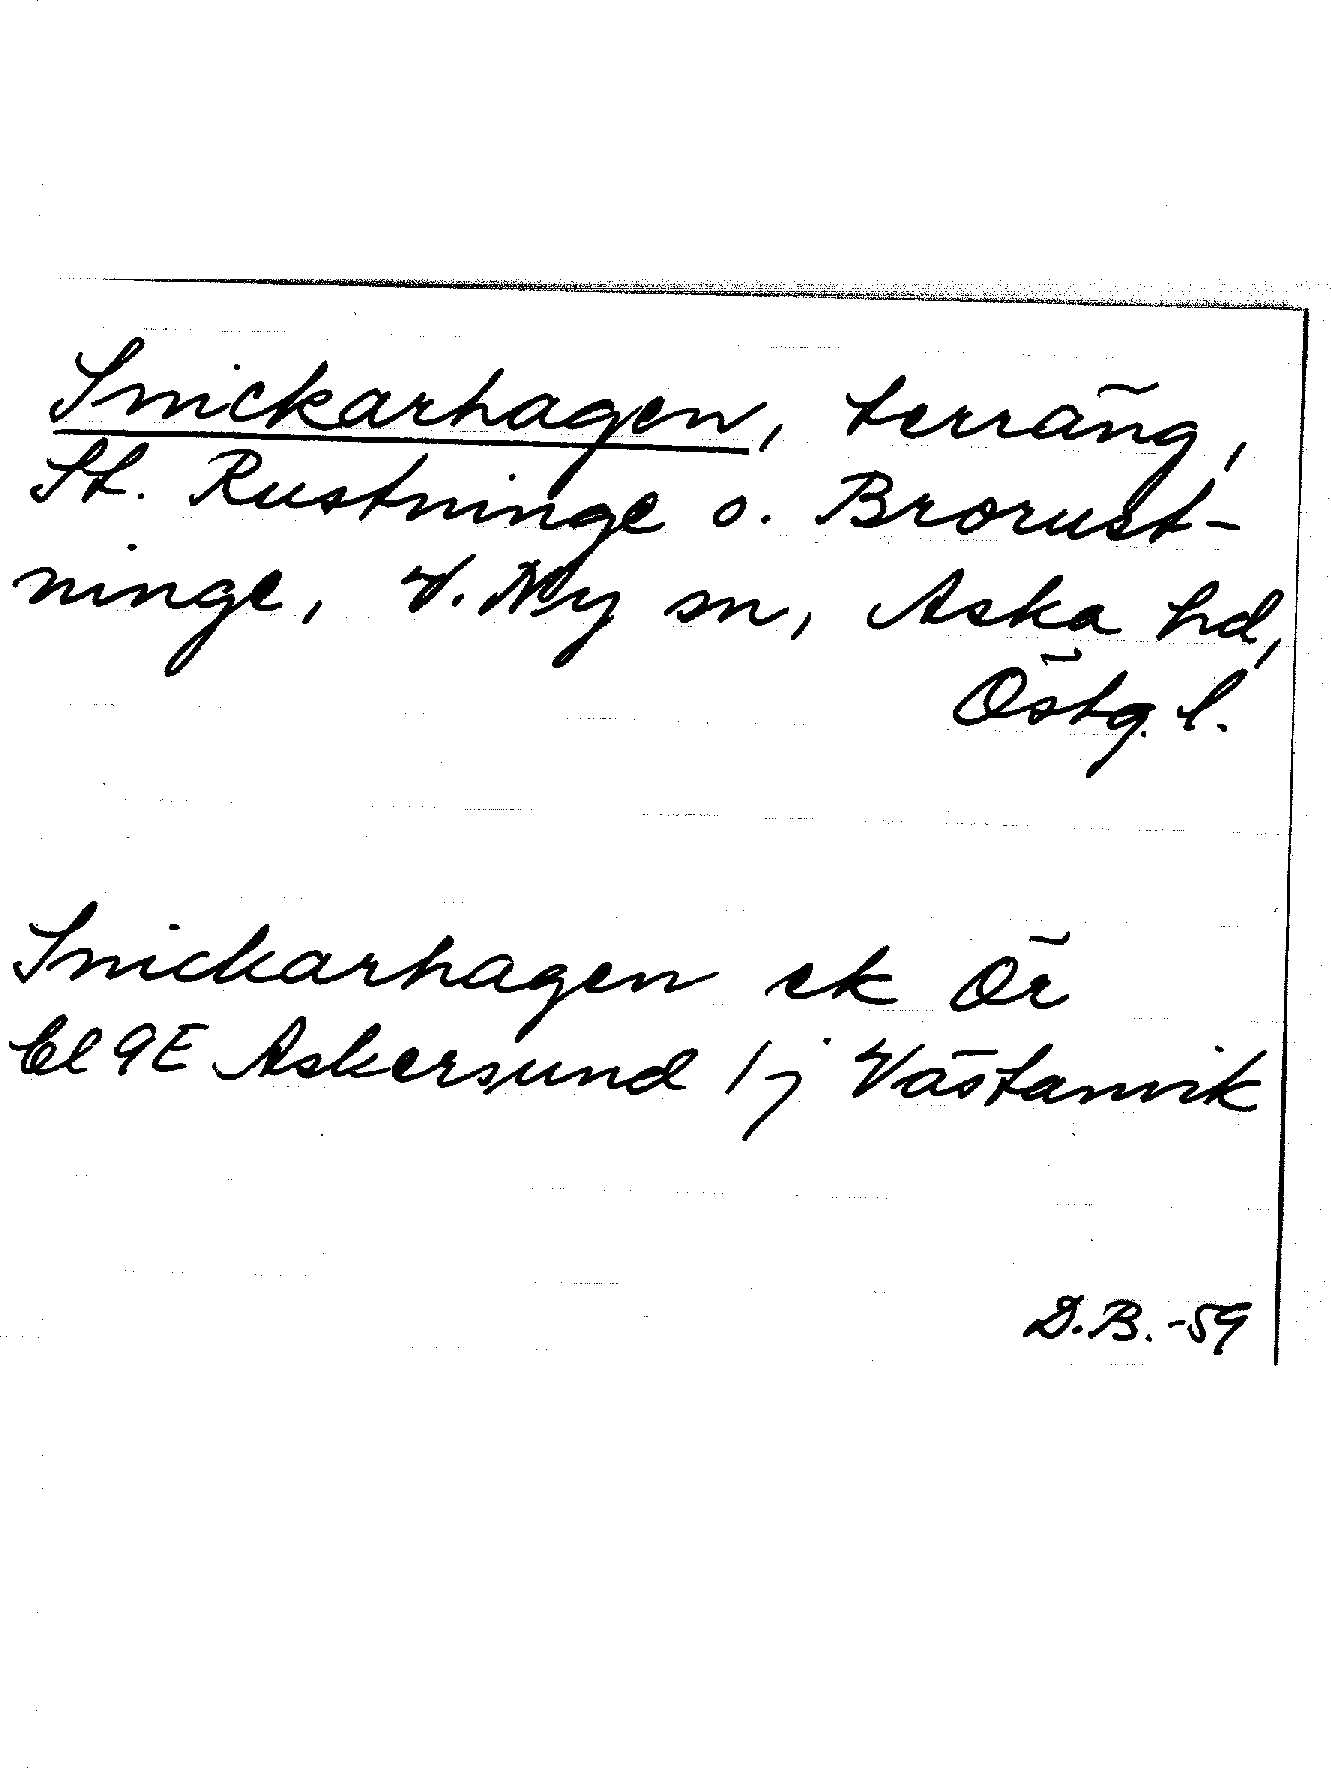 Snickarhagen, terräng,
St. Rustninge o. Brorust-
ninge, V. Ny sn, Aska hd,
Östg. l.
Snickarhagen ek Öe
El 9E Askersund 1 j Västanvik
D.B. -59